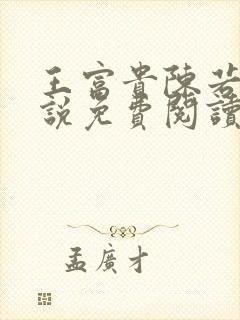 王富貴陳若
說免費閱讀
孟廣才